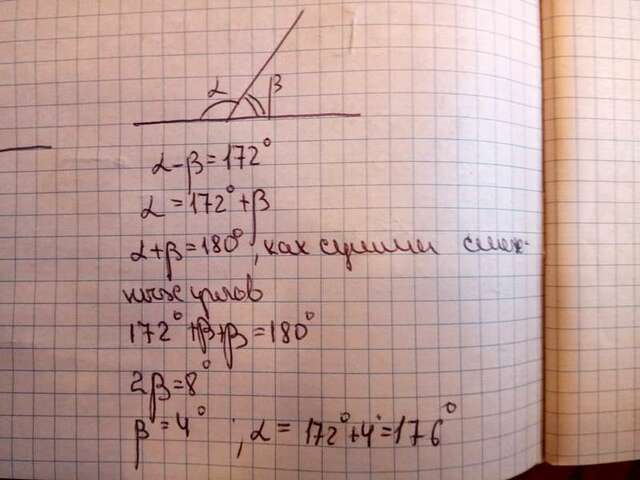 α β
α-β=172°
α=172°+β
α+β=180°, как суммы смеж-
ных углов
172°+β+β=180°
2β=8°
β=4°, α=172°+4°=176°